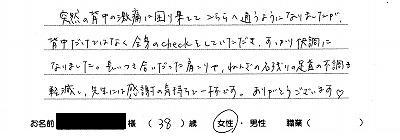 突然の背中の激痛に困り果ててこちらへ通うようになりましたが、
背中だけではなく全身のcheckをしていただき、すっかり快調に
なりました。長いつき合いだった肩こりや、ねんざの名残りの足首の不調も
軽減し、先生には感謝の気持ちで一杯です。ありがとうございます♡
お名前 様 (38)歳 女性・男性 職業( )